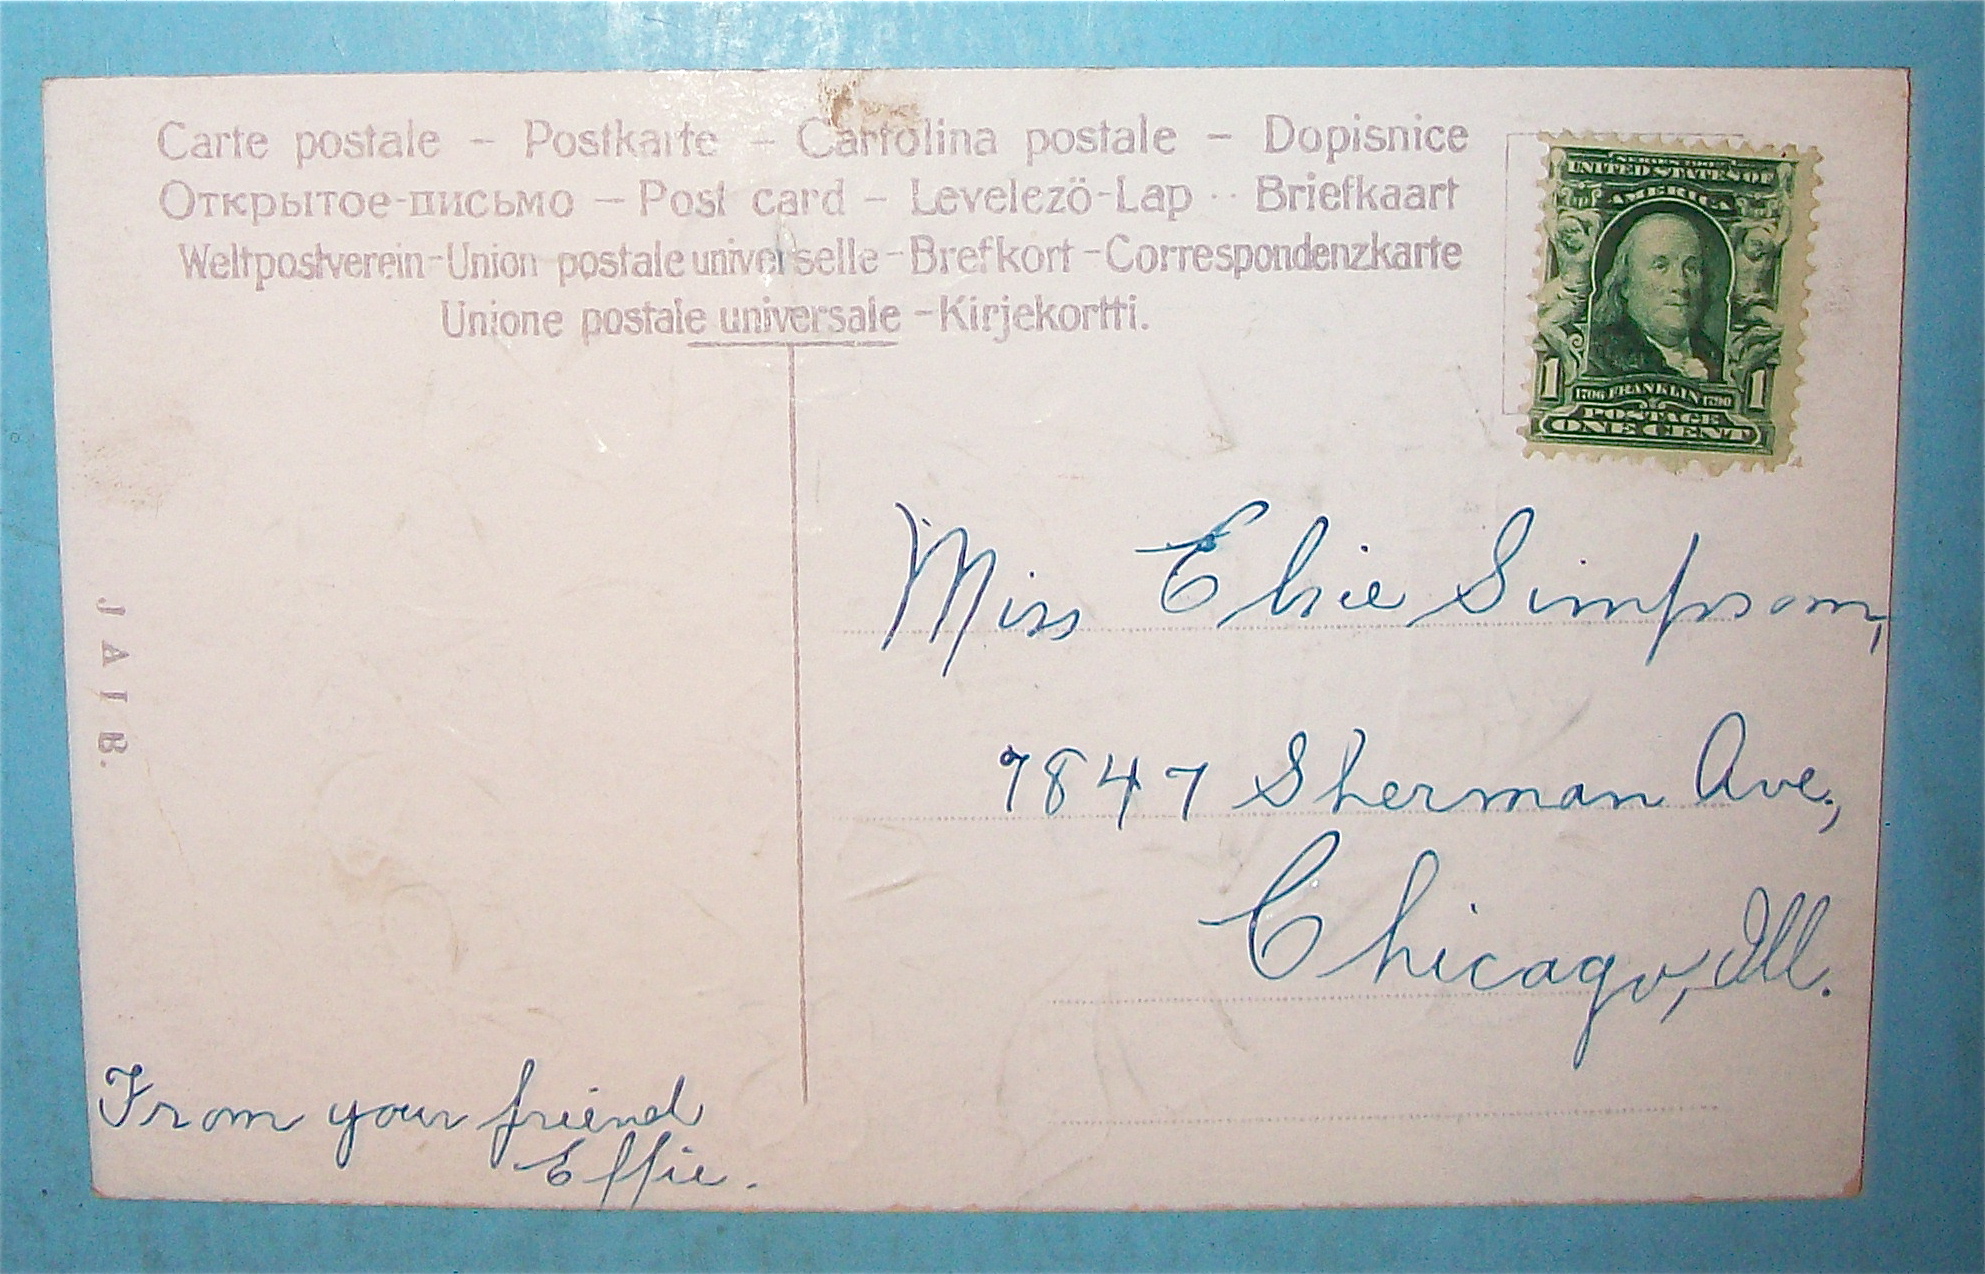 Carte postale – Postkarte – Cartolina postale – Dopisnice
Открытое-письмо – Post card – Levelezö-Lap – Briefkaart
Weltpostverein-Union postale universelle-Brefkort-Correspondenzkarte
Unione postale universale -Kirjekortti.
SERIES 1902
UNITED STATES OF
AMERICA
1 1706 FRANKLIN 1790 1
POSTAGE
ONE CENT
Miss Elsie Simpson,
7847 Sherman Ave,
Chicago, Ill.
J A I B.
From your friend
Effie.